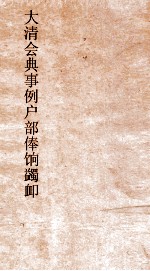 大清会典事例户部俸饷蠲卹